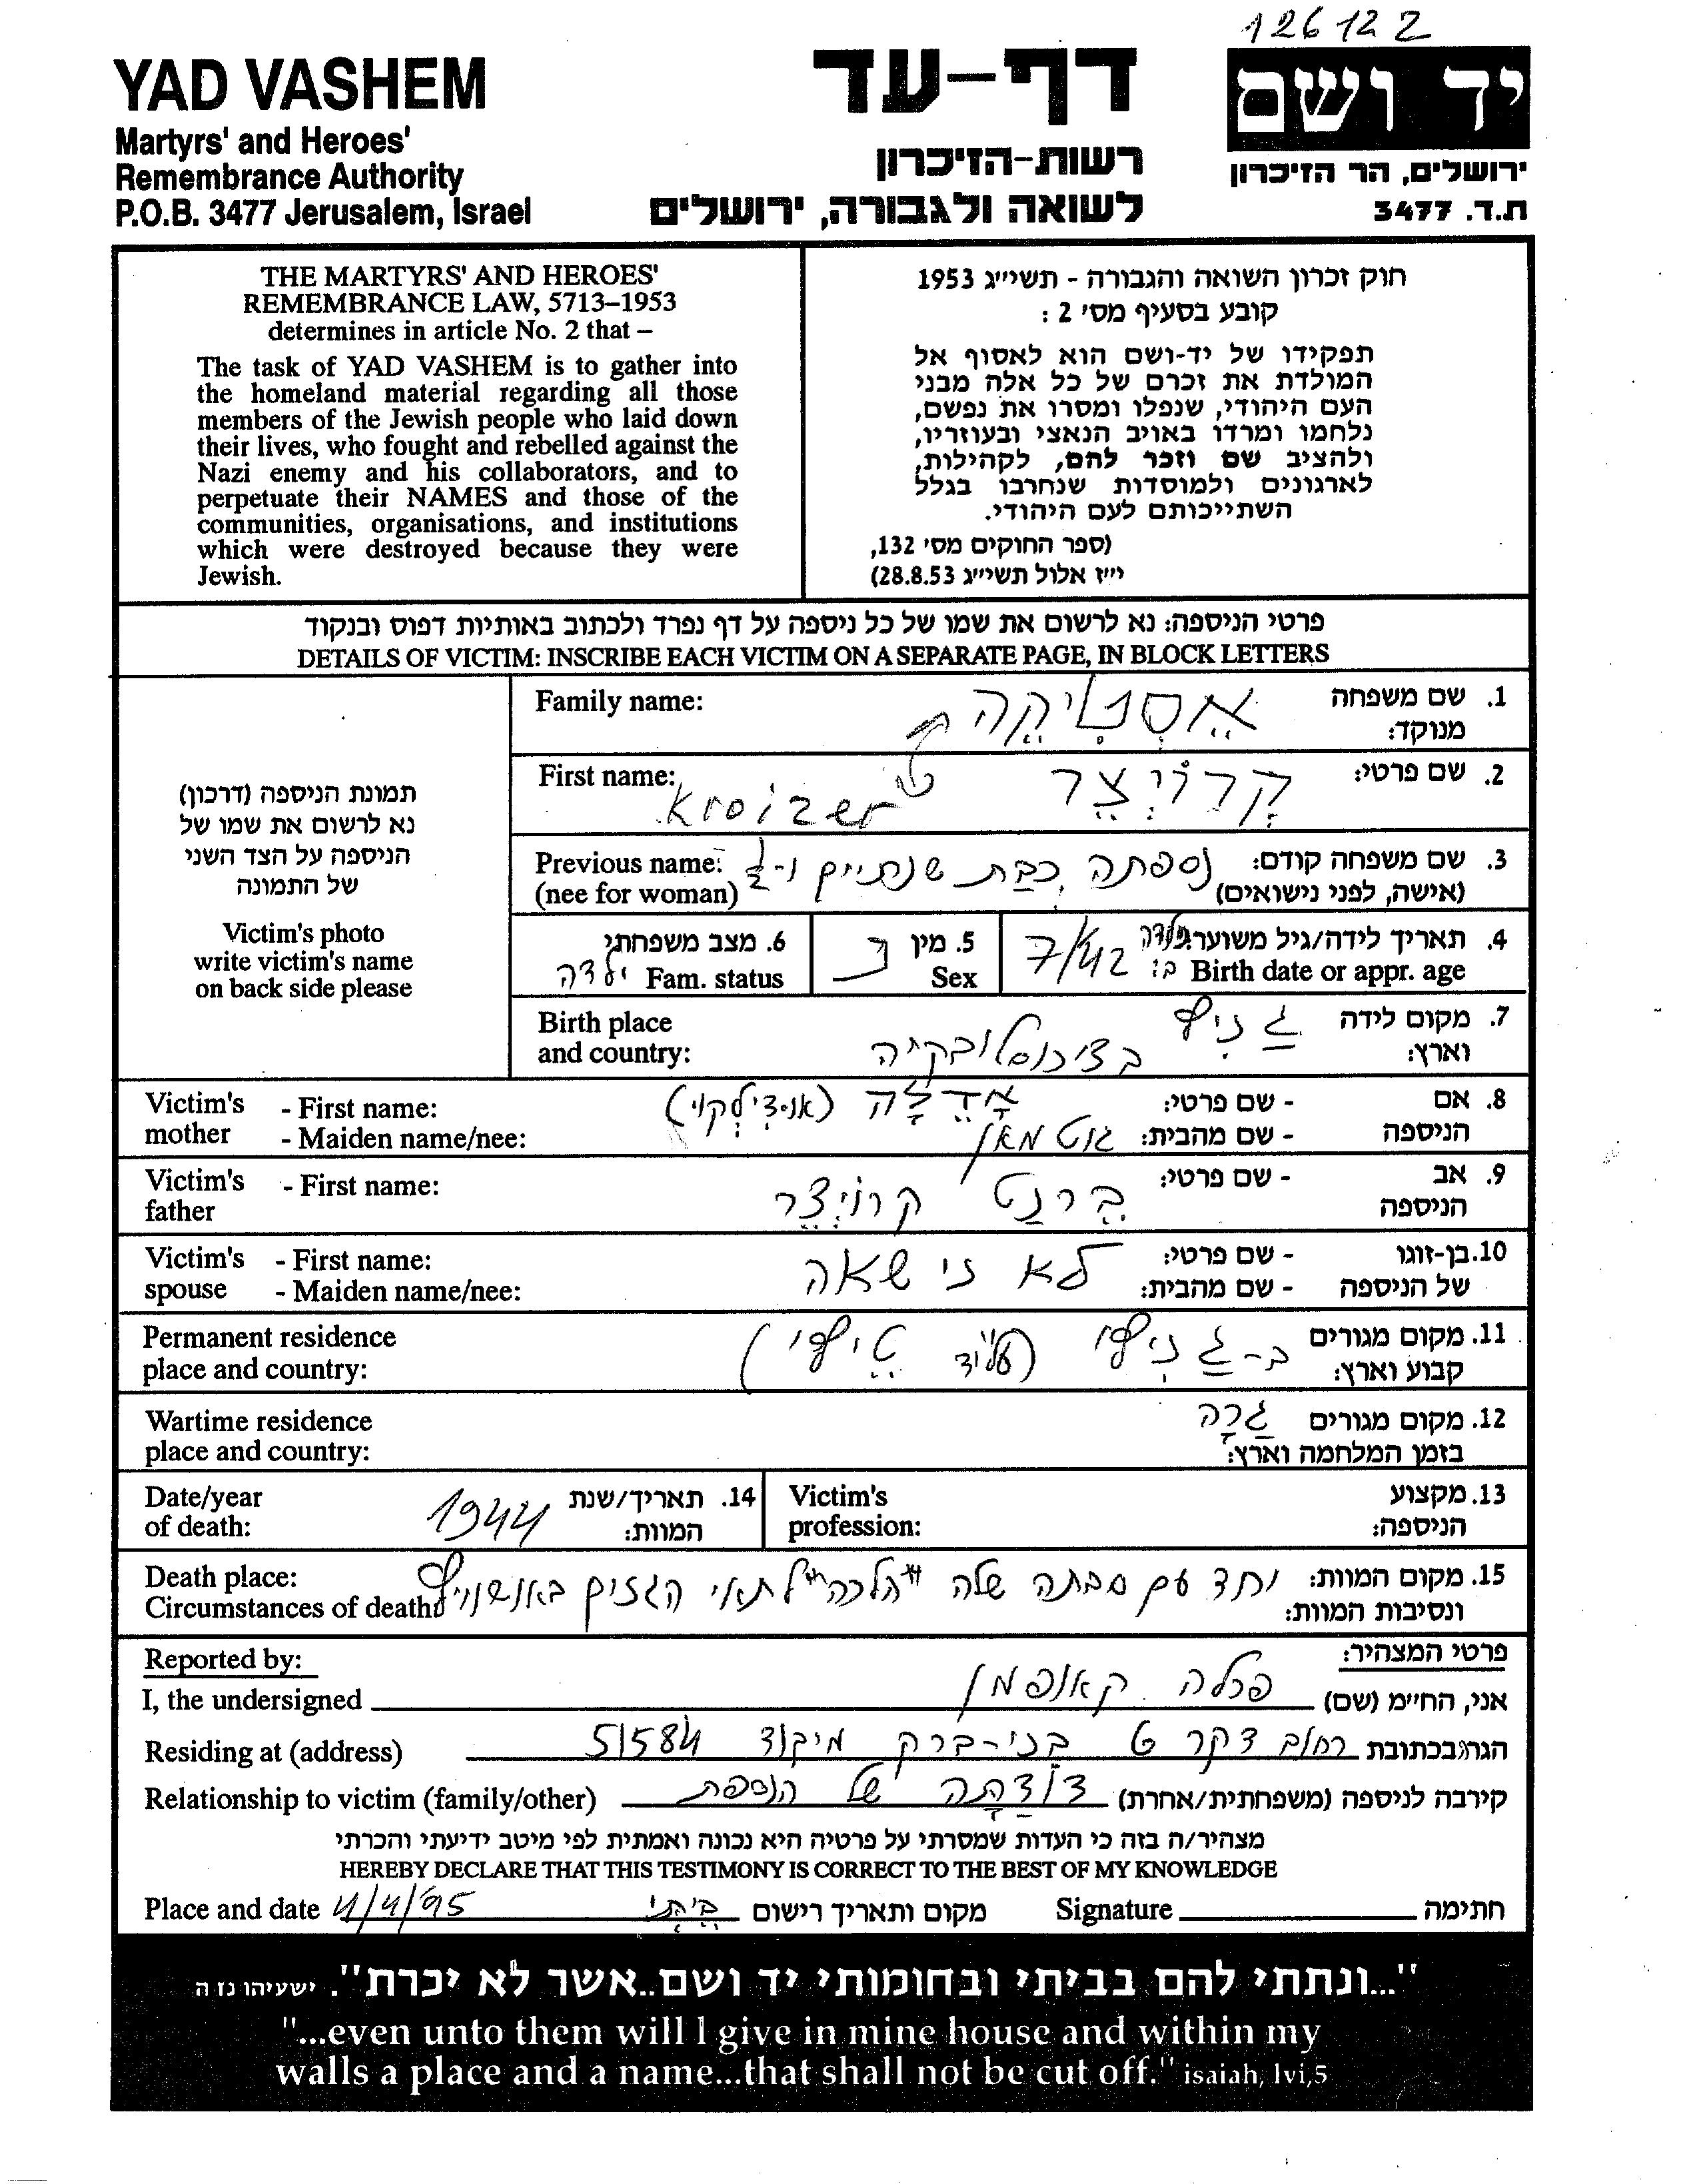 126122
YAD VASHEM
Martyrs' and Heroes'
Remembrance Authority
P.O.B. 3477 Jerusalem, Israel
דף-עד
רשות-הזיכרון
לשואה ולגבורה, ירושלים
יד ושם
ירושלים, הר הזיכרון
ת.ד. 3477
THE MARTYRS' AND HEROES'
REMEMBRANCE LAW, 5713–1953
determines in article No. 2 that –
The task of YAD VASHEM is to gather into
the homeland material regarding all those
members of the Jewish people who laid down
their lives, who fought and rebelled against the
Nazi enemy and his collaborators, and to
perpetuate their NAMES and those of the
communities, organisations, and institutions
which were destroyed because they were
Jewish.
חוק זכרון השואה והגבורה - תשי״ג 1953
קובע בסעיף מס׳ 2 :
תפקידו של יד-ושם הוא לאסוף אל
המולדת את זכרם של כל אלה מבני
העם היהודי, שנפלו ומסרו את נפשם,
נלחמו ומרדו באויב הנאצי ובעוזריו,
ולהציב שם וזכר להם, לקהילות,
לארגונים ולמוסדות שנחרבו בגלל
השתייכותם לעם היהודי.
(ספר החוקים מס׳ 132,
י״ז אלול תשי״ג 28.8.53)
פרטי הניספה: נא לרשום את שמו של כל ניספה על דף נפרד ולכתוב באותיות דפוס ובנקוד
DETAILS OF VICTIM: INSCRIBE EACH VICTIM ON A SEPARATE PAGE, IN BLOCK LETTERS
תמונת הניספה (דרכון)
נא לרשום את שמו של
הניספה על הצד השני
של התמונה
Victim's photo
write victim's name
on back side please
Family name: 1. שם משפחה
מנוקד:
First name: קְרוֹיְצֶר 2. שם פרטי:
Kroizer
Previous name: נספתה כבת שנתיים ו- 3. שם משפחה קודם:
(nee for woman) (אישה, לפני נישואים)
6. מצב משפחתי
ילדה Fam. status
5. מין נ
Sex
4. תאריך לידה/גיל משוער: 7/42
Birth date or appr. age
Birth place 7. מקום לידה
and country: בצ'כוסלובקיה וארץ:
Victim's - First name: אָדֶלָה - שם פרטי: 8. אם
mother - Maiden name/nee: גוטמאן - שם מהבית: הניספה
Victim's - First name: בֶּרְנַט קרוֹיְצֶר - שם פרטי: 9. אב
father הניספה
Victim's - First name: לא נישאה - שם פרטי: 10. בן-זוגו
spouse - Maiden name/nee: - שם מהבית: של הניספה
Permanent residence 11. מקום מגורים
place and country: קבוע וארץ:
Wartime residence גָרָה 12. מקום מגורים
place and country: בזמן המלחמה וארץ:
Date/year 1944 14. תאריך/שנת
of death: המוות:
Victim's 13. מקצוע
profession: הניספה:
Death place: יחד עם סבתה שלה "הלכה" לתאי הגזים באושוויץ 15. מקום המוות:
Circumstances of death: ונסיבות המוות:
Reported by: פרטי המצהיר:
I, the undersigned פרלה קאופמן אני, החי״מ (שם)
Residing at (address) רחוב דקר 6 בני-ברק מיקוד 51584 הגר בכתובת
Relationship to victim (family/other) דוֹדָתָהּ של הנספת קירבה לניספה (משפחתית/אחרת)
מצהיר/ה בזה כי העדות שמסרתי על פרטיה היא נכונה ואמתית לפי מיטב ידיעתי והכרתי
HEREBY DECLARE THAT THIS TESTIMONY IS CORRECT TO THE BEST OF MY KNOWLEDGE
Place and date 4/4/95 בֵּיתִי מקום ותאריך רישום Signature חתימה
"...ונתתי להם בביתי ובחומותי יד ושם..אשר לא יכרת". ישעיהו נז ה
"...even unto them will I give in mine house and within my
walls a place and a name...that shall not be cut off." isaiah, lvi,5